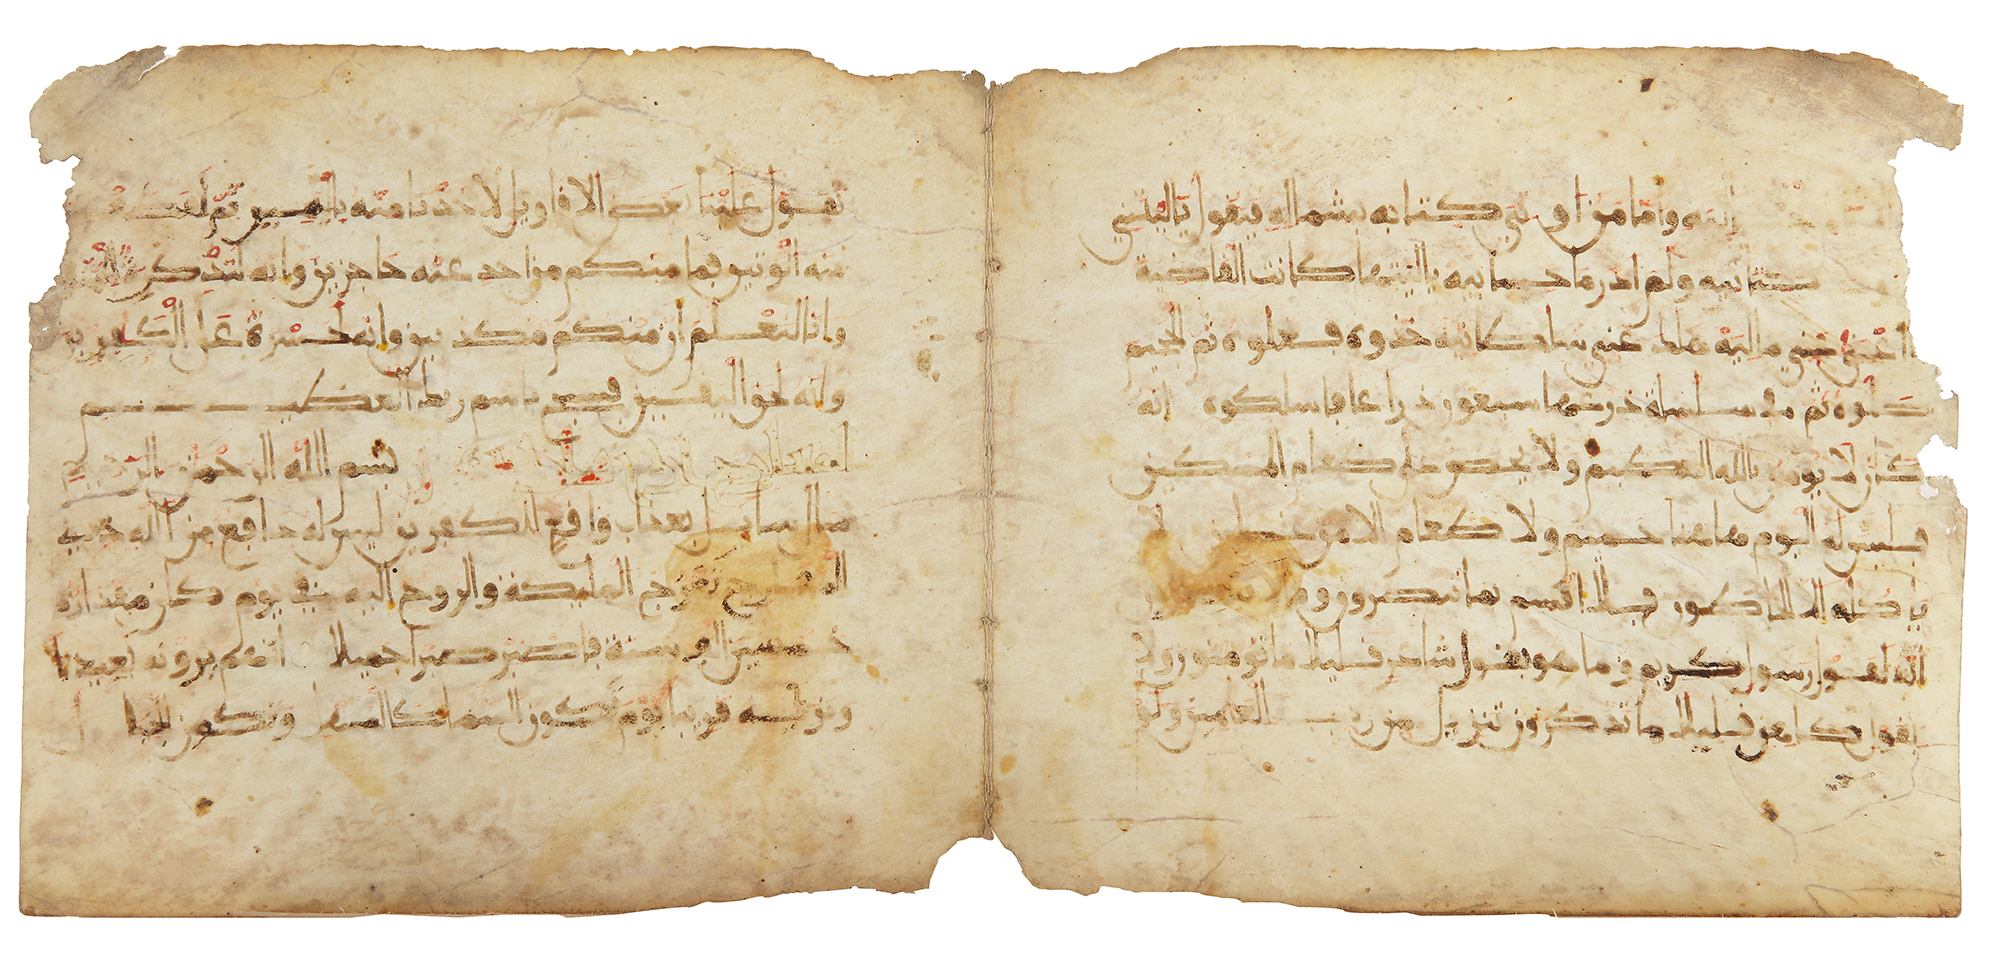 الخالية واما من اوتي كتابه بشماله فيقول ياليتني
كتابيه ولم ادر ما حسابيه ياليتها كانت القاضية
ما اغنى عني ماليه هلك عني سلطانيه خذوه فغلوه ثم الجحيم
صلوه ثم في سلسلة ذرعها سبعون ذراعا فاسلكوه انه
كان لا يومن بالله العظيم ولا يحض على طعام المسكين
فليس له اليوم هاهنا حميم ولا طعام الا من غسلين لا
ياكله الا الخاطون فلا اقسم بما تبصرون وما لا تبصرون
انه لقول رسول كريم وما هو بقول شاعر قليلا ما تومنون ولا
بقول كاهن قليلا ما تذكرون تنزيل من رب العلمين ولو
تقول علينا بعض الاقاويل لاخذنا منه باليمين ثم لقطعنا
منه الوتين فما منكم من احد عنه حاجزين وانه لتذكرة للمتقين
وانا لنعلم ان منكم مكذبين وانه لحسرة على الكفرين
وانه لحق اليقين فسبح باسم ربك العظيم
بسم الله الرحمن الرحيم
سال سايل بعذاب واقع للكفرين ليس له دافع من الله ذي
المعارج تعرج المليكة والروح اليه في يوم كان مقداره
خمسين الف سنة فاصبر صبرا جميلا انهم يرونه بعيدا
ونريه قريبا يوم تكون السما كالمهل وتكون الجبال